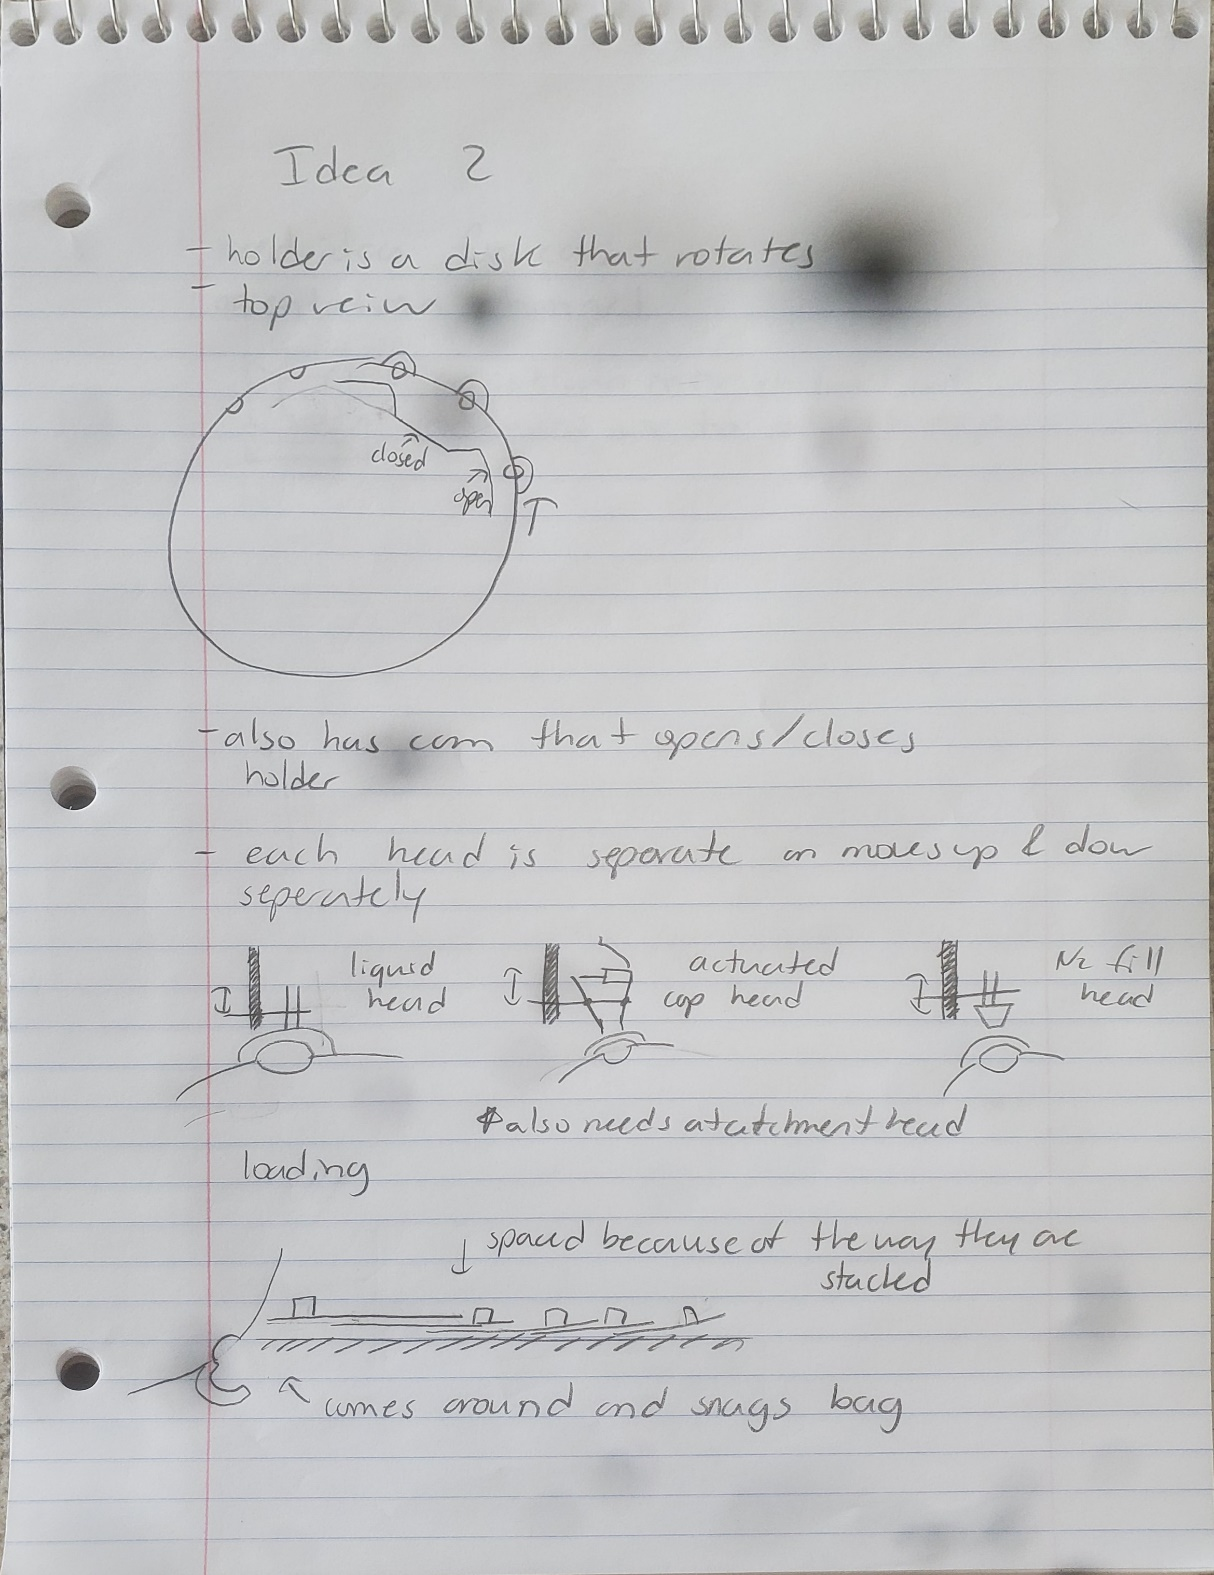 Idea 2
- holder is a disk that rotates
- top veiw
closed
open
- also has cam that opens/closes
holder
- each head is seperate an moves up & dow
seperately
liquid
head
actuated
cap head
N2 fill
head
*also needs atatchment head
loading
↓ spaced because of the way they are
stacked
comes around and snags bag